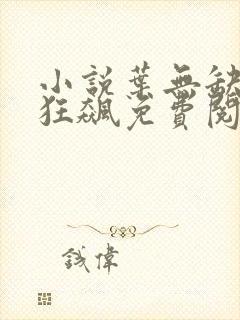 小說葉無缺
狂飆免費閱
錢偉